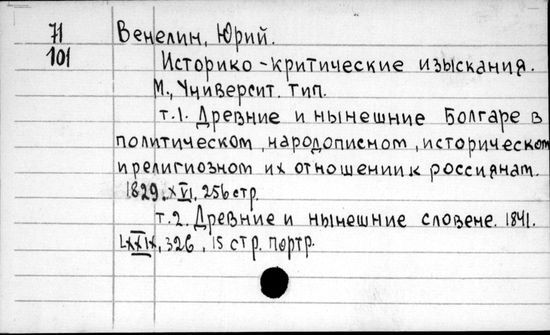 71
101
Венелин, Юрий.
Историко-критические изыскания.
М., Университ. тип.
т.1. Древние и нынешние Болгаре в
политическом, народописном, историческом
и религиозном их отношении к россиянам.
1829. XVI, 256 стр.
т.2. Древние и нынешние словене. 1841.
LXXIX, 326, 15 стр. портр.